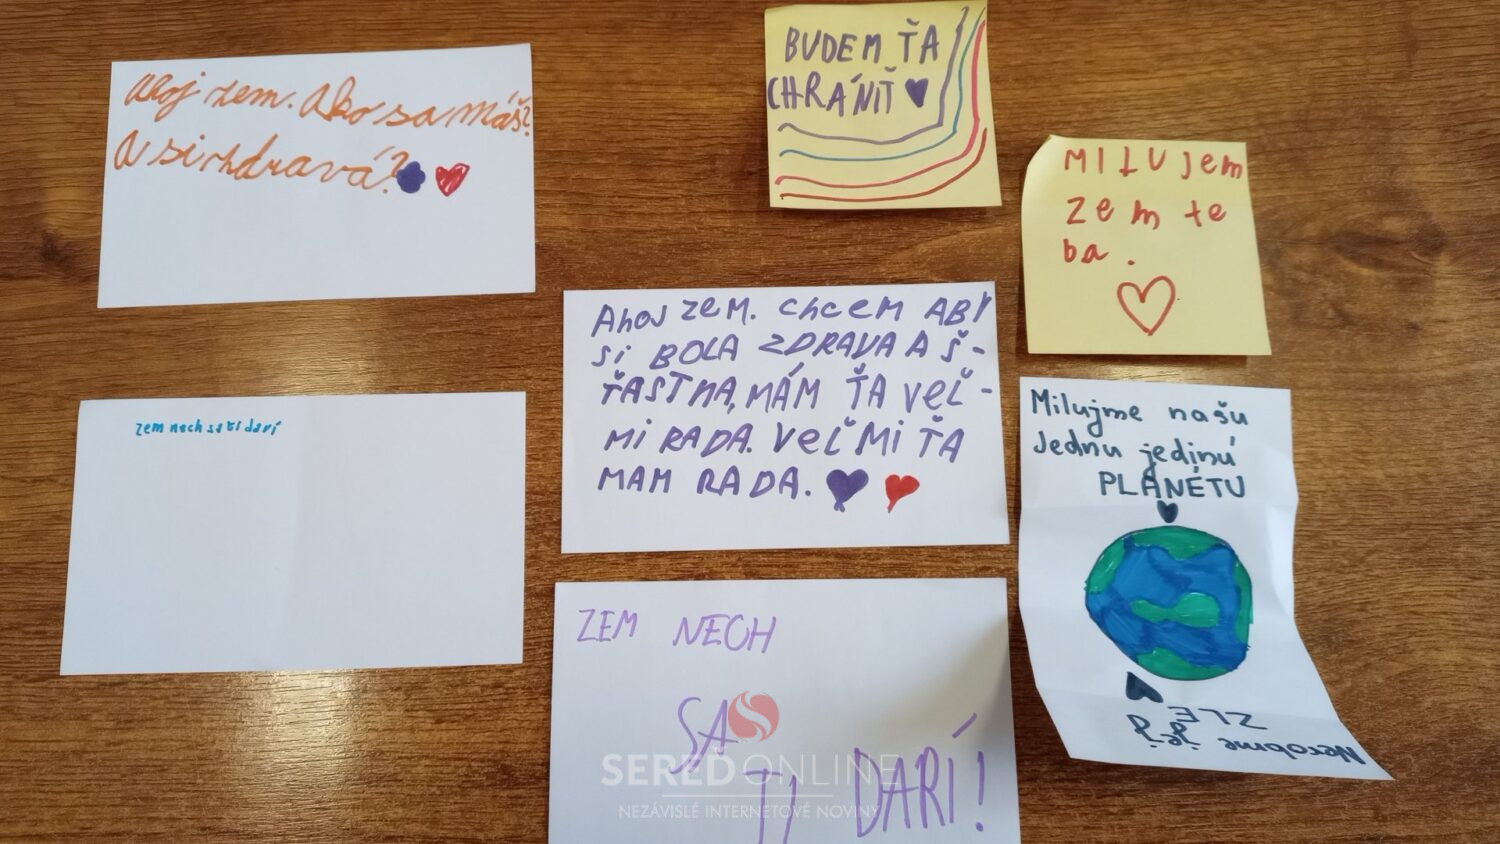 Ahoj zem. Ako sa máš?
A si zdravá?
BUDEM ŤA
CHRÁNIŤ
MILUJem
Zem te
ba.
Ahoj zem. chcem ABY
si BOLA ZDRAVA A Š-
ŤASTNA, MÁM ŤA VEĽ-
MI RADA. VEĽMI ŤA
MAM RADA.
zem nech sa ti darí
Milujme našu
Jednu jedinú
PLANÉTU
Nerobme jej
ZLE
ZEM NECH
SA
TI DARÍ!
SEREĎ ONLINE
NEZÁVISLÉ INTERNETOVÉ NOVINY